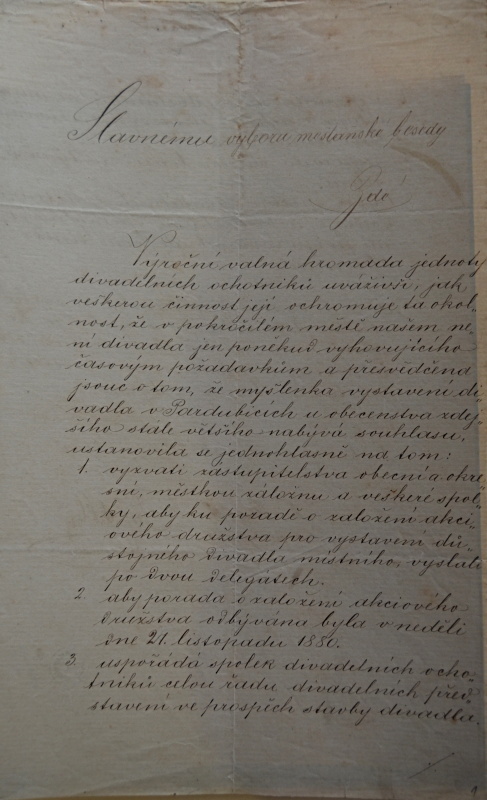 Slavnému výboru měšťanské besedy
Zde
Výroční valná hromada jednoty
divadelních ochotníků uváživši, jak
veškerou činnost její ochromuje ta okol-
nost, že v pokročilém městě našem ne-
ní divadla jen poněkud vyhovujícího
časovým požadavkům a přesvědčena
jsouc o tom, že myšlenka vystavení di-
vadla v Pardubicích u obecenstva zdej-
šího stále většího nabývá souhlasu,
ustanovila se jednohlasně na tom:
1. vyzvati zastupitelstva obecní a okre-
sní, městkou záložnu a veškeré spol-
ky, aby ku poradě o založení akci-
ového družstva pro vystavení dů-
stojného divadla místního, vyslali
po dvou delegátech.
2. aby porada o založení akciového
družstva odbývána byla v neděli
dne 21. listopadu 1880.
3. uspořádá spolek divadelních ocho-
tníků celou řadu divadelních před-
stavení ve prospěch stavby divadla.